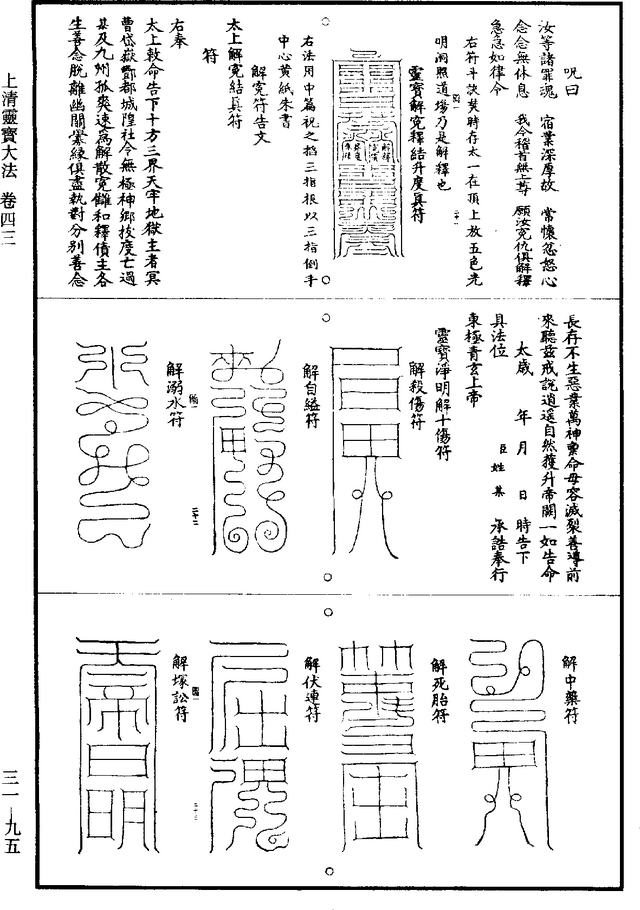 呪曰
汝等諸罪魂　宿業深厚故　常懷忿怒心
念念無休息　我今稽首無上尊　願汝冤仇俱解釋
急急如律令
右符斗訣焚時存太一在頂上放五色光
明洞照道場乃是解釋也
靈寶解冤釋結升度眞符
右法用中篇祝之掐三指根以三指倒手
中心黄紙朱書
解冤符告文
太上解冤結眞符
符
右奉
太上敕命告下十方三界天牢地獄主者冥
曹岱嶽酆都城隍社令無極神鄉拔度亡過
某及九州孤爽速爲解散冤讎和釋債主各
生善念脫離幽關業緣俱盡執對分別善念
長存不生惡業萬神稟命毋容滅裂善導前
來聽兹戒説逍遥自然獲升帝闕一如告命
太歲　年　月　日　時告下
具法位　臣姓某　承誥奉行
東極青玄上帝
靈寶淨明解十傷符
解殺傷符
解自縊符
解溺水符
解中藥符
解死胎符
解伏連符
解塚訟符
上清靈寶大法　卷四三
三一—九五